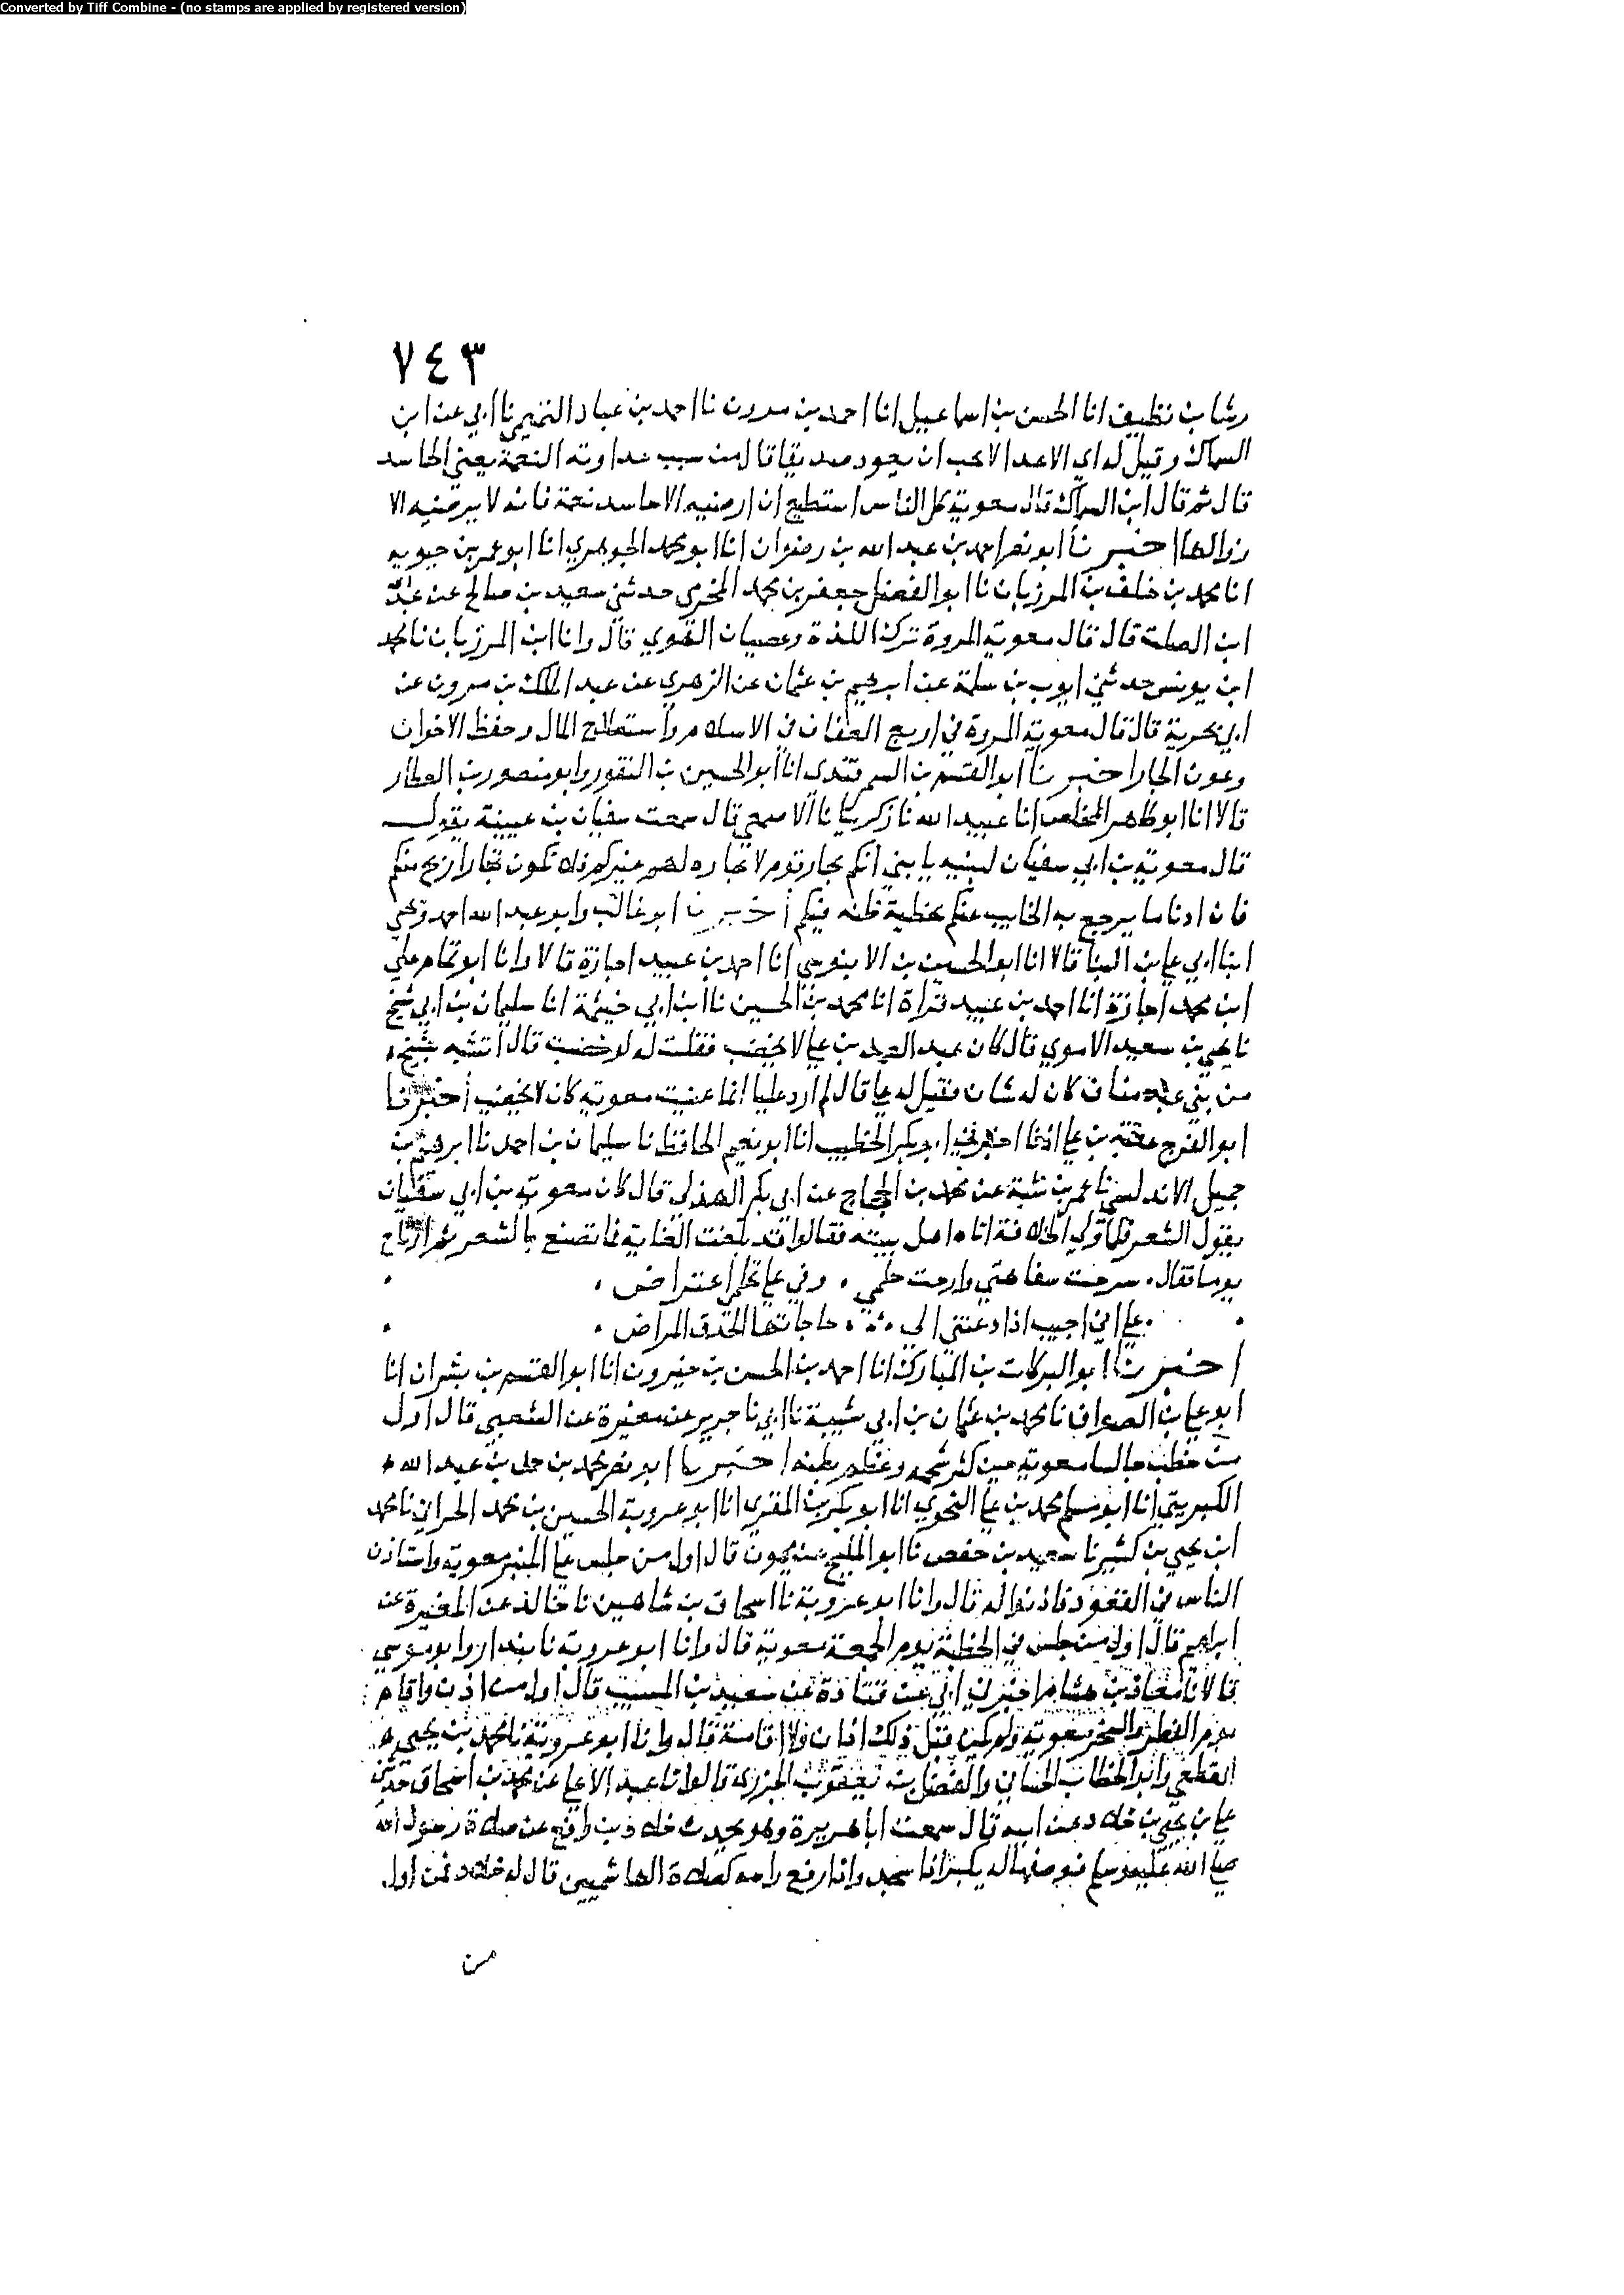 Converted by Tiff Combine - (no stamps are applied by registered version)
٧٤٣
رشا بن نظيف انا الحسن بن اسماعيل انا احمد بن مرون نا احمد بن عباد التميمي نا ابي عن ابن
السماك وقيل له اي الاعدا لا تحب ان يعود صديقا قال من سبب عداوته النعمة يعني الحاسد
قال ثم قال ابن السماك قال معوية كل الناس استطيع ان ارضيه الا حاسد نعمة فانه لا يرضيه الا
زوالها اخبرنا ابو نصر احمد بن عبد الله بن رضوان انا ابو محمد الجوهري انا ابو عمر بن حيويه
انا محمد بن خلف بن المرزبان نا ابو الفضل جعفر بن محمد المخرمي حدثني سعيد بن صالح عن عبد الله
ابن الصلت قال قال معوية المروة ترك اللذة وعصيان الهوي قال وانا ابن المرزبان نا محمد
ابن يونس حدثني ايوب بن سلمة عن ابرهيم بن عثمان عن الزهري عن عبد الملك بن مرون عن
ابي بحرية قال قال معوية المروة في اربع العفاف في الاسلام واستصلاح المال وحفظ الاخوان
وعون الجار اخبرنا ابو القسم بن السمرقندي انا ابو الحسين بن النقور وابو منصور بن العطار
قالا انا ابو طاهر المخلص انا عبيد الله نا زكريا نا الاصمعي قال سمعت سفيان بن عيينة يقول
قال معوية بن ابي سفيان لبنيه يا بني انكم تجار قوم لا تجارة لهم غيركم فلا تكون تجار اربح منكم
فان ادنا ما يرجع به الخايب عنكم تخطية ظنه فيكم اخبرنا ابو غالب وابو عبد الله احمد ويحيي
ابنا ابي علي بن البنا قالا انا ابو الحسين بن الابنوسي انا احمد بن عبيد اجازة قالا وانا ابو تمام علي
ابن محمد اجازة انا احمد بن عبيد قراة انا محمد بن الحسين نا ابن ابي خيثمة انا سليمان بن ابي شيخ
نا يحيي بن سعيد الاموي قال كان عبد الصمد بن علي لا يخضب فقلت له لو خضبت قال اتشبه بشيخ
من بني عبد مناف كان له شان فقيل له علي قال لم ارد عليا انما عنيت معوية كان لا يخضب اخبرنا
ابو الفرج غيث بن علي انا اخبرني ابو بكر الخطيب انا ابو نعيم الحافظ نا سليمان بن احمد نا ابرهيم بن
جميل الاندلسي نا عمر بن شبة عن محمد بن الحجاج عن ابي بكر الهذلي قال كان معوية بن ابي سفيان
يقول الشعر فلما ولي الخلافة اتاه اهل بيته فقالوا قد بلغت الغاية فما تصنع بالشعر ثم ارتاح
يوما فقال . سرحت سفاهتي وارحت حلمي . وفي علي تحلمي اعتراض .
علي اني اجيب اذا دعتني الي حاجاتها الحدق المراض .
اخبرنا ابو البركات بن المبارك انا احمد بن الحسن بن خيرون انا ابو القسم بن بشران انا
ابو علي بن الصواف نا محمد بن عثمان بن ابي شيبة نا ابي نا جرير عن مغيرة عن الشعبي قال اول
من خطب جالسا معوية حين كثر شحمه وعظم بطنه اخبرنا ابو نصر محمد بن حمد بن عبد الله
الكبريتي انا ابو مسلم محمد بن علي النحوي انا ابو بكر بن المقري انا ابو عروبة الحسين بن محمد الحراني نا محمد
ابن يحيي بن كثير نا سعيد بن حفص نا ابو المليح عن ميمون قال اول من جلس علي المنبر معوية واستاذن
الناس في القعود فاذنوا له قال وانا ابو عروبة نا اسحاق بن شاهين نا خالد عن المغيرة عن
ابراهيم قال اول من جلس في الخطبة يوم الجمعة معوية قال وانا ابو عروبة نا بندار وابو موسي
قالا نا معاذ بن هشام اخبرني ابي عن قتادة عن سعيد بن المسيب قال اول من اذن واقام
يوم الفطر والنحر معوية ولم يكن قبل ذلك اذان ولا اقامة قال وانا ابو عروبة نا محمد بن يحيي
القطعي وابو الخطاب الحساني والفضل بن يعقوب الجزري قالوا نا عبد الاعلي عن محمد بن اسحاق حدثني
علي بن يحيي بن خلاد عن ابيه قال سمعت ابا هريرة وهو يحدث خلاد بن رافع عن صلاة رسول الله
صلي الله عليه وسلم فوصفها له يكبر اذا سجد واذا رفع راسه كصلاة الهاشميين قال له خلاد فمن اول
من